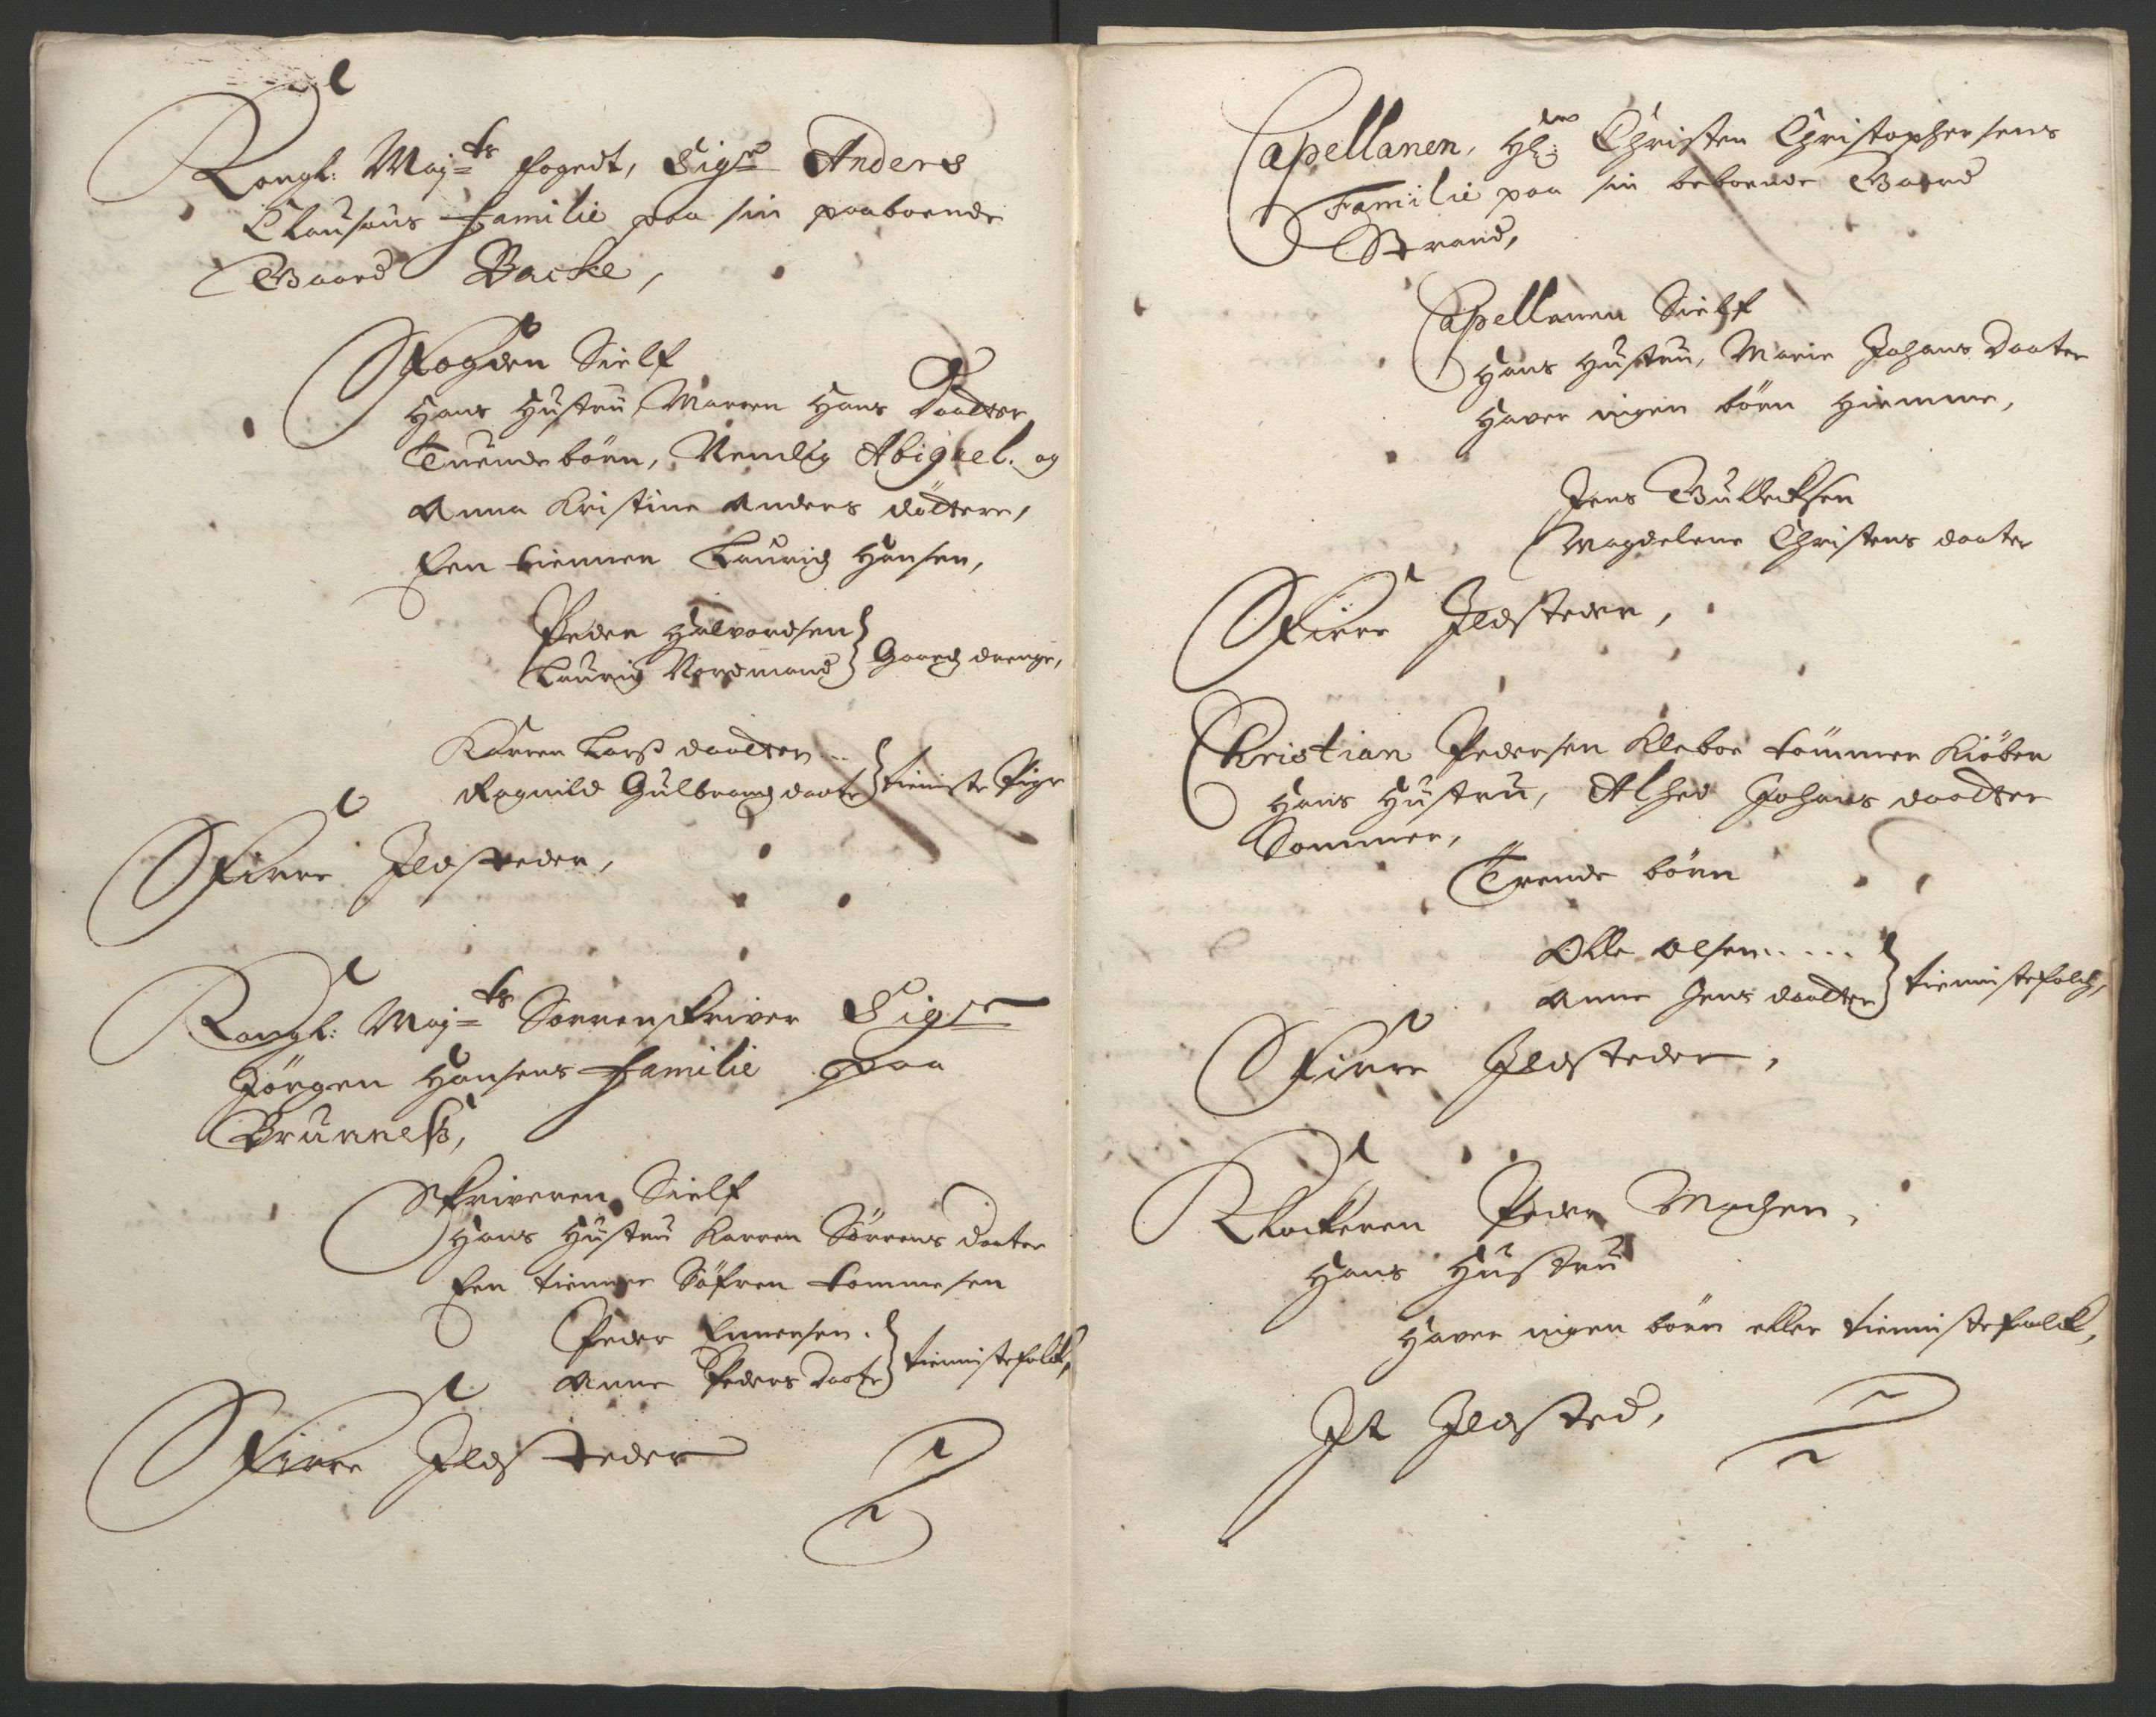 Kongl: Maj=ts fogedt, Sigr Anders
Clausøns Familie paa sin paaboende
Gaard Backe,
Fogden Sielf
Hans Hustru Marren Hans Daatter
Tuende börn, Nemlig Abigael. og
Anna Kristine Anders döttere,
Een tienner Lauridz Hansen,
Peder Halvordsen
Lauridz Nordmand } Gaardz drenge,
Karren Larß daatter ...
Ragnild Gulbrandz daater } tieniste Pige
Fiire Ildsteder,
Kongl: Maj=ts Sorrenskriver Sigr
Jörgen Hansens Familie paa
Brunneß,
Skriveren Sielf
Hans Hustru Karren Sörrens Daater
Een tienner Söfren Tommesen
Peder Einersen.
Anne Peders Daater } tiennistefolck,
Fiire Ildsteder
Capellanen, Hr: Christen Christophersens
Familie paa sin beboende Gaard
Strand,
Capellanen Sielf
Hans Hustru, Marie Johans Daater
Haver ingen börn hiemme,
Jens Gullecksen
Magdelene Christens daater
Fiire Ildsteder,
Christian Pedersen Kleboe tömmer Kiöber
Hans Hustru, Alhed Johans daatter
Sommer,
Trende börn
Olle Olsen.....
Anne Jens daatter } tiennistefolch,
Fiire Ildsteder,
Klockeren Peder Madsen,
Hans Hustru
Haver ingen börn eller tiennistefolck,
It Ildsted,